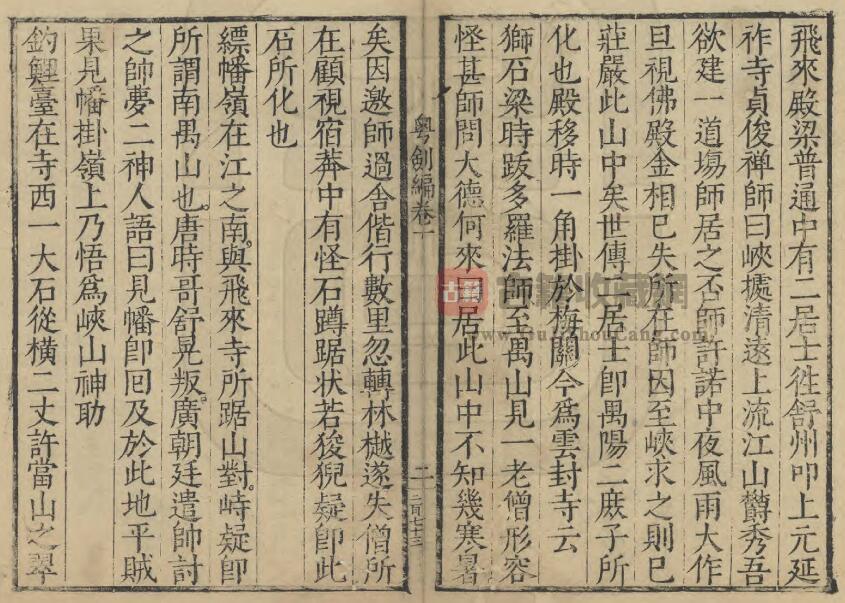 飛來殿梁普通中有二居士徃舒州叩上元延
祚寺貞俊禅師曰峽㨿清遠上流江山欝秀吾
欲建一道塲師居之否師許諾中夜風雨大作
旦視佛殿金相已失所在師因至峽求之則已
莊嚴此山中矣世傳二居士卽禺陽二庻子所
化也殿移時一角掛於梅關今爲雲封寺云
獅石梁時跋多羅法師至禺山見一老僧形容
怪甚師問大德何來曰居此山中不知幾寒暑
粤劍編卷一
二
二百七十三
矣因邀師過舎偕行數里忽轉林樾遂失僧所
在顧視宿莽中有怪石蹲踞状若狻猊疑卽此
石所化也
縹幡嶺在江之南與飛來寺所踞山對峙疑卽
所謂南禺山也唐時哥舒晃叛廣朝廷遣帥討
之帥夢二神人語曰見幡卽囘及於此地平賊
果見幡掛嶺上乃悟爲峽山神助
釣鯉臺在寺西一大石從橫二丈許當山之翠
古籍
古籍收藏網